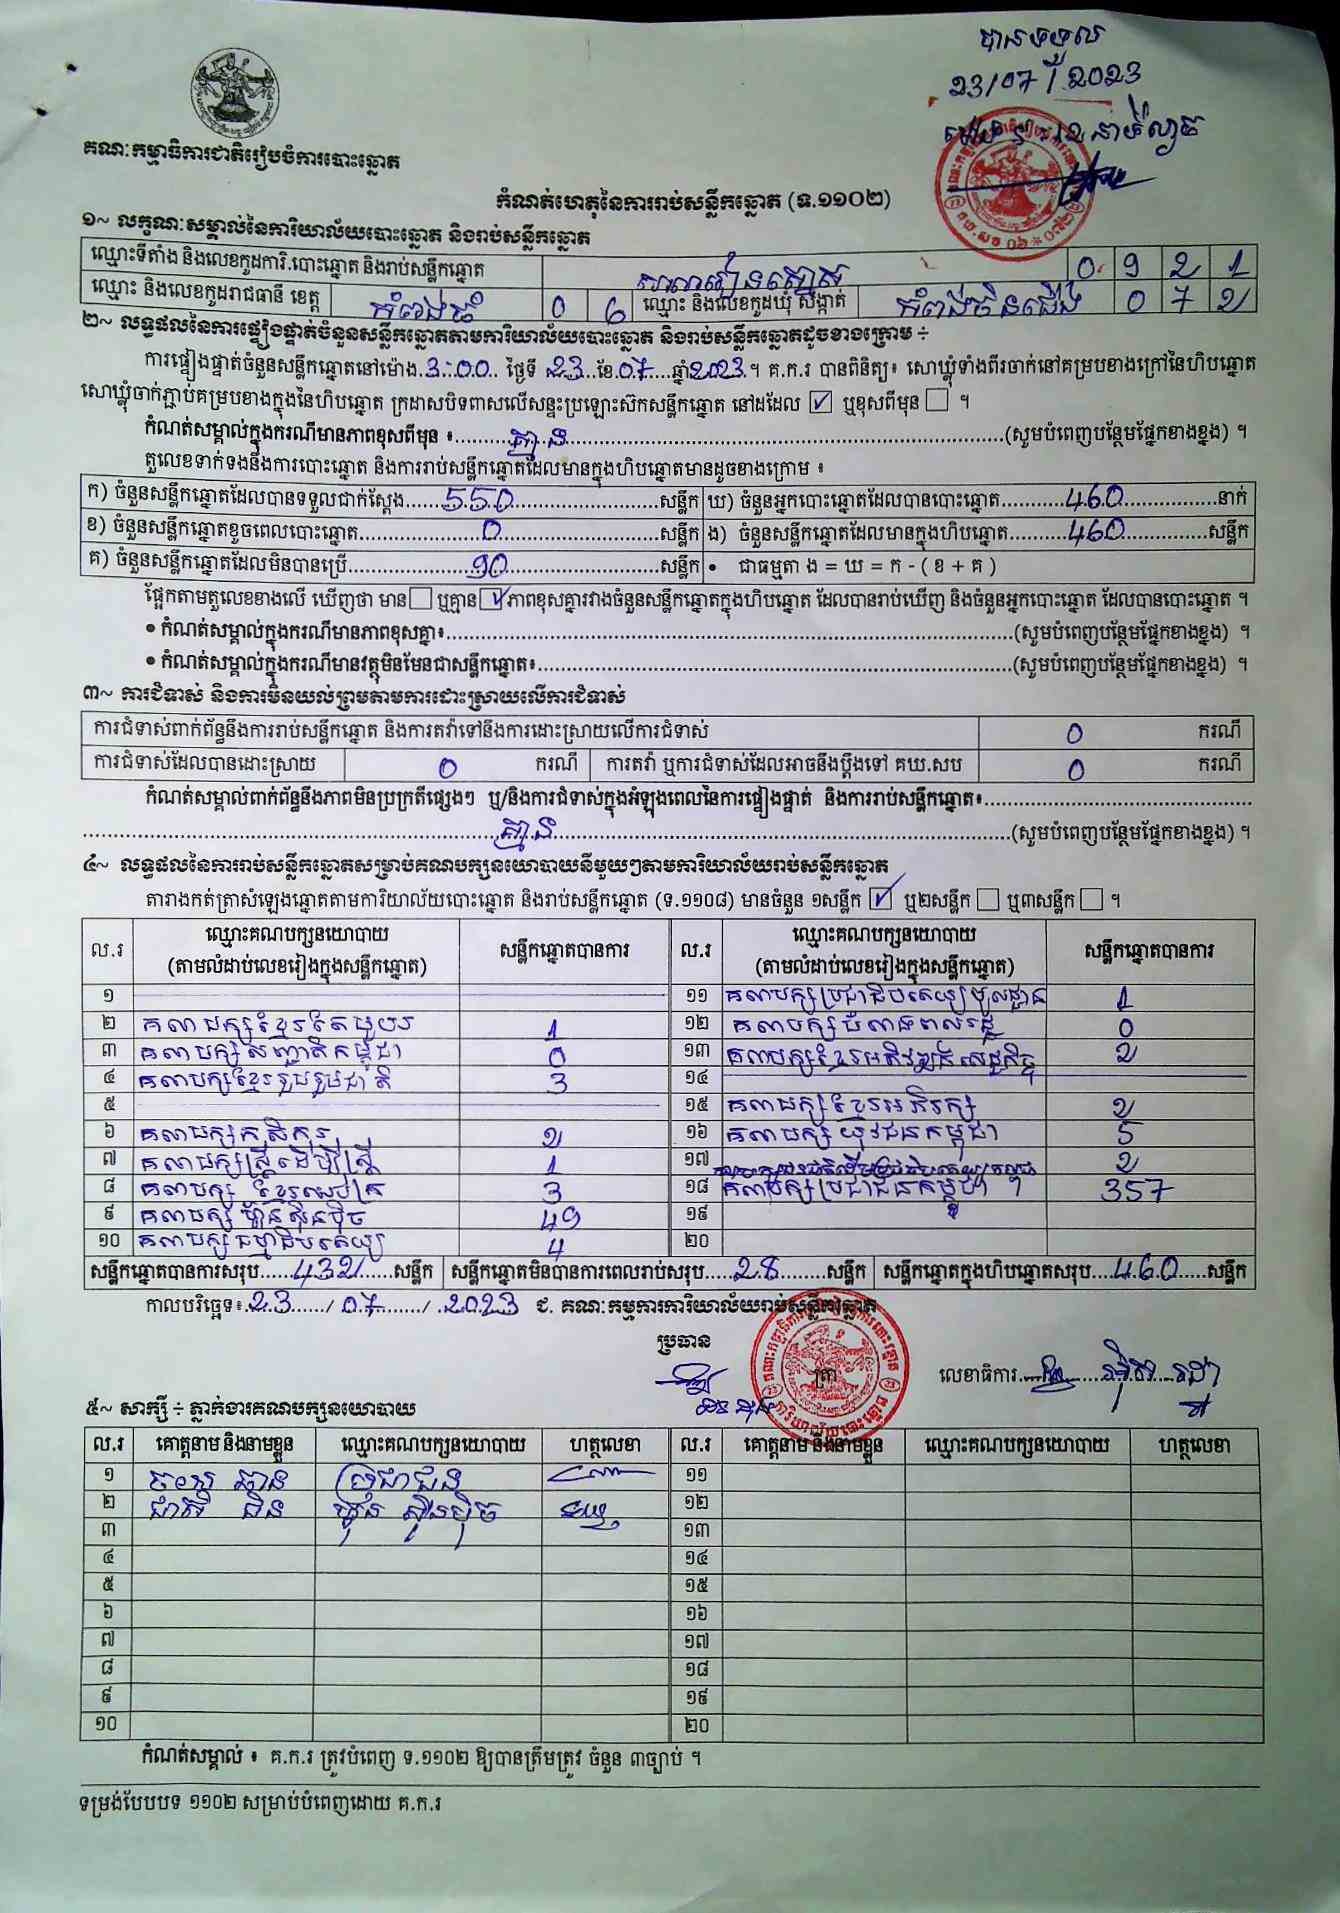 បានទទួល
23/07/2023
គណៈកម្មាធិការជាតិរៀបចំការបោះឆ្នោត
កំណត់ហេតុនៃការរាប់សន្លឹកឆ្នោត (ទ.១១០២)
១~ លក្ខណៈសម្គាល់នៃការិយាល័យបោះឆ្នោត និងរាប់សន្លឹកឆ្នោត
ឈ្មោះទីតាំង និងលេខកូដការិ.បោះឆ្នោត និងរាប់សន្លឹកឆ្នោត 0 9 2 1
ឈ្មោះ និងលេខកូដរាជធានី ខេត្ត កំពង់ធំ 0 6 ឈ្មោះ និងលេខកូដឃុំ សង្កាត់ កំពង់ចិនជើង 0 7 2
២~ លទ្ធផលនៃការផ្ទៀងផ្ទាត់ចំនួនសន្លឹកឆ្នោតតាមការិយាល័យបោះឆ្នោត និងរាប់សន្លឹកឆ្នោតដូចខាងក្រោម ÷
ការផ្ទៀងផ្ទាត់ចំនួនសន្លឹកឆ្នោតនៅម៉ោង 3:00 ថ្ងៃទី 23 ខែ 07 ឆ្នាំ 2023 ។ គ.ក.រ បានពិនិត្យ៖ សោឃ្លុំទាំងពីរចាក់នៅគម្របខាងក្រៅនៃហិបឆ្នោត
សោឃ្លុំចាក់ភ្ជាប់គម្របខាងក្នុងនៃហិបឆ្នោត ក្រដាសបិទពាសលើសន្ទះប្រឡោះស៊កសន្លឹកឆ្នោត នៅដដែល ☑ ឬខុសពីមុន ☐ ។
កំណត់សម្គាល់ក្នុងករណីមានភាពខុសពីមុន ៖ គ្មាន (សូមបំពេញបន្ថែមផ្នែកខាងខ្នង) ។
តួលេខទាក់ទងនឹងការបោះឆ្នោត និងការរាប់សន្លឹកឆ្នោតដែលមានក្នុងហិបឆ្នោតមានដូចខាងក្រោម ៖
ក) ចំនួនសន្លឹកឆ្នោតដែលបានទទួលជាក់ស្តែង 550 សន្លឹក ឃ) ចំនួនអ្នកបោះឆ្នោតដែលបានបោះឆ្នោត 460 នាក់
ខ) ចំនួនសន្លឹកឆ្នោតខូចពេលបោះឆ្នោត 0 សន្លឹក ង) ចំនួនសន្លឹកឆ្នោតដែលមានក្នុងហិបឆ្នោត 460 សន្លឹក
គ) ចំនួនសន្លឹកឆ្នោតដែលមិនបានប្រើ 90 សន្លឹក • ជាធម្មតា ង = ឃ = ក - ( ខ + គ )
ផ្អែកតាមតួលេខខាងលើ ឃើញថា មាន ☐ ឬគ្មាន ☑ ភាពខុសគ្នារវាងចំនួនសន្លឹកឆ្នោតក្នុងហិបឆ្នោត ដែលបានរាប់ឃើញ និងចំនួនអ្នកបោះឆ្នោត ដែលបានបោះឆ្នោត ។
• កំណត់សម្គាល់ក្នុងករណីមានភាពខុសគ្នា៖ (សូមបំពេញបន្ថែមផ្នែកខាងខ្នង) ។
• កំណត់សម្គាល់ក្នុងករណីមានវត្ថុមិនមែនជាសន្លឹកឆ្នោត៖ (សូមបំពេញបន្ថែមផ្នែកខាងខ្នង) ។
៣~ ការជំទាស់ និងការមិនយល់ព្រមតាមការដោះស្រាយលើការជំទាស់
ការជំទាស់ពាក់ព័ន្ធនឹងការរាប់សន្លឹកឆ្នោត និងការតវ៉ាទៅនឹងការដោះស្រាយលើការជំទាស់ 0 ករណី
ការជំទាស់ដែលបានដោះស្រាយ 0 ករណី ការតវ៉ា ឬការជំទាស់ដែលអាចនឹងប្តឹងទៅ គឃ.សប 0 ករណី
កំណត់សម្គាល់ពាក់ព័ន្ធនឹងភាពមិនប្រក្រតីផ្សេងៗ ឬ/និងការជំទាស់ក្នុងអំឡុងពេលនៃការផ្ទៀងផ្ទាត់ និងការរាប់សន្លឹកឆ្នោត៖
គ្មាន (សូមបំពេញបន្ថែមផ្នែកខាងខ្នង) ។
៤~ លទ្ធផលនៃការរាប់សន្លឹកឆ្នោតសម្រាប់គណបក្សនយោបាយនីមួយៗតាមការិយាល័យរាប់សន្លឹកឆ្នោត
តារាងកត់ត្រាសំឡេងឆ្នោតតាមការិយាល័យបោះឆ្នោត និងរាប់សន្លឹកឆ្នោត (ទ.១១០៨) មានចំនួន ១សន្លឹក ☑ ឬ២សន្លឹក ☐ ឬ៣សន្លឹក ☐ ។
ល.រ ឈ្មោះគណបក្សនយោបាយ (តាមលំដាប់លេខរៀងក្នុងសន្លឹកឆ្នោត) សន្លឹកឆ្នោតបានការ ល.រ ឈ្មោះគណបក្សនយោបាយ (តាមលំដាប់លេខរៀងក្នុងសន្លឹកឆ្នោត) សន្លឹកឆ្នោតបានការ
១ ១១ គណបក្សប្រជាធិបតេយ្យមូលដ្ឋាន 1
២ គណបក្សខ្មែរតែមួយ 1 ១២ គណបក្សជំលានពលរដ្ឋ 0
៣ គណបក្សសញ្ជាតិកម្ពុជា 0 ១៣ គណបក្សខ្មែរអភិវឌ្ឍន៍សេដ្ឋកិច្ច 2
៤ គណបក្សខ្មែររួបរួមជាតិ 3 ១៤
៥ ១៥ គណបក្សខ្មែរអភិរក្ស 2
៦ គណបក្សកសិករ 2 ១៦ គណបក្សយុវជនកម្ពុជា 5
៧ គណបក្សស្ត្រីដើម្បីស្ត្រី 1 ១៧ 2
៨ គណបក្ស ខ្មែរ 3 ១៨ គណបក្សប្រជាជនកម្ពុជា 357
៩ គណបក្សហ៊្វុនស៊ិនប៉ិច 49 ១៩
១០ គណបក្សធម្មាធិបតេយ្យ 4 ២០
សន្លឹកឆ្នោតបានការសរុប 432 សន្លឹក សន្លឹកឆ្នោតមិនបានការពេលរាប់សរុប 28 សន្លឹក សន្លឹកឆ្នោតក្នុងហិបឆ្នោតសរុប 460 សន្លឹក
កាលបរិច្ឆេទ៖ 23/07/2023 ជ. គណៈកម្មការការិយាល័យរាប់សន្លឹកឆ្នោត
ប្រធាន
ត្រា លេខាធិការ
៥~ សាក្សី ÷ ភ្នាក់ងារគណបក្សនយោបាយ
ល.រ គោត្តនាម និងនាមខ្លួន ឈ្មោះគណបក្សនយោបាយ ហត្ថលេខា ល.រ គោត្តនាម និងនាមខ្លួន ឈ្មោះគណបក្សនយោបាយ ហត្ថលេខា
១ ប្រជាជន ១១
២ ហ៊្វុន ស៊ិនប៉ិច ១២
៣ ១៣
៤ ១៤
៥ ១៥
៦ ១៦
៧ ១៧
៨ ១៨
៩ ១៩
១០ ២០
កំណត់សម្គាល់ ៖ គ.ក.រ ត្រូវបំពេញ ទ.១១០២ ឱ្យបានត្រឹមត្រូវ ចំនួន ៣ច្បាប់ ។
ទម្រង់បែបបទ ១១០២ សម្រាប់បំពេញដោយ គ.ក.រ